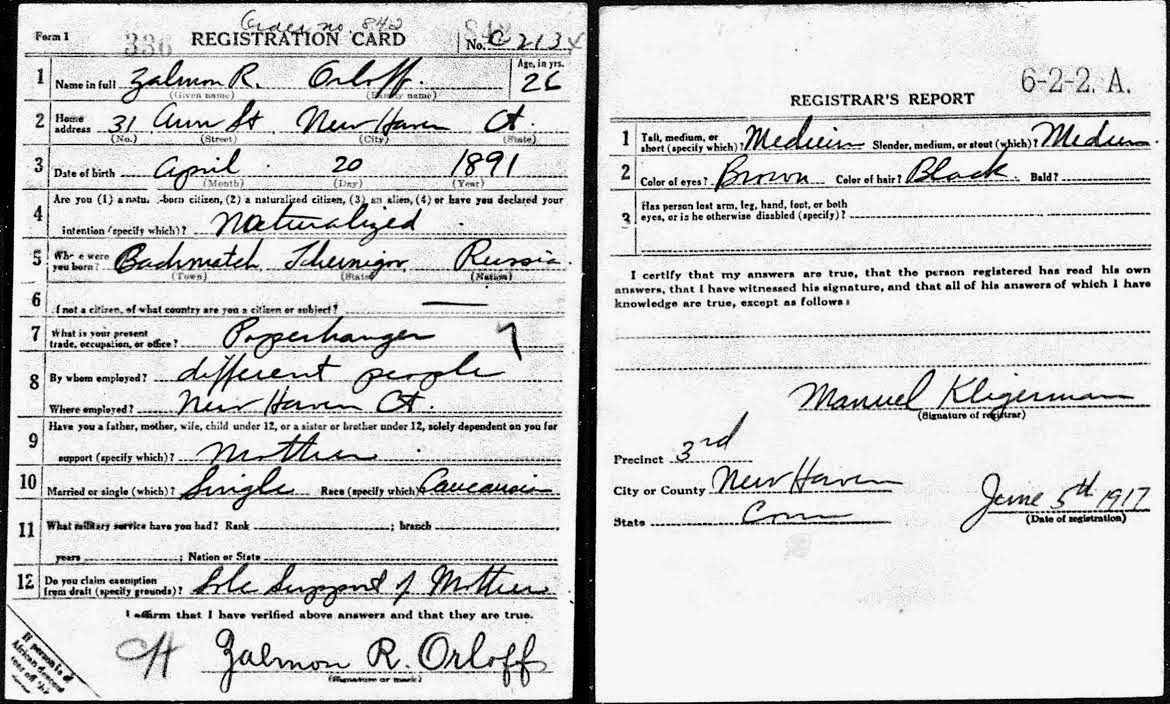 Order no. 842
Form 1 336 REGISTRATION CARD No. 213
1 Name in full Zalmon R. Orloff. Age, in yrs. 26
(Given name) (Family name)
2 Home address 31 Ann St New Haven Ct.
(No.) (Street) (City) (State)
3 Date of birth April 20 1891
(Month) (Day) (Year)
4 Are you (1) a natu. -born citizen, (2) a naturalized citizen, (3) an alien, (4) or have you declared your
intention (specify which)? Naturalized
5 Where were you born? Bachmatch Thernigov Russia.
(Town) (State) (Nation)
6 If not a citizen, of what country are you a citizen or subject? —
7 What is your present trade, occupation, or office? Paperhanger 7
8 By whom employed? different people
Where employed? New Haven Ct.
9 Have you a father, mother, wife, child under 12, or a sister or brother under 12, solely dependent on you for
support (specify which)? Mother
10 Married or single (which)? Single Race (specify which)? Caucasian
11 What military service have you had? Rank ; branch
years ; Nation or State
12 Do you claim exemption from draft (specify grounds)? Sole Support of Mother
I affirm that I have verified above answers and that they are true.
Zalmon R. Orloff
(Signature or mark)
If person is of
African descent
tear off this
6-2-2. A.
REGISTRAR'S REPORT
1 Tall, medium, or short (specify which)? Medium Slender, medium, or stout (which)? Medium
2 Color of eyes? Brown Color of hair? Black Bald?
3 Has person lost arm, leg, hand, foot, or both
eyes, or is he otherwise disabled (specify)?
I certify that my answers are true, that the person registered has read his own
answers, that I have witnessed his signature, and that all of his answers of which I have
knowledge are true, except as follows:
Manuel Kligerman
(Signature of registrar)
Precinct 3rd
City or County New Haven
State Conn
June 5th 1917
(Date of registration)